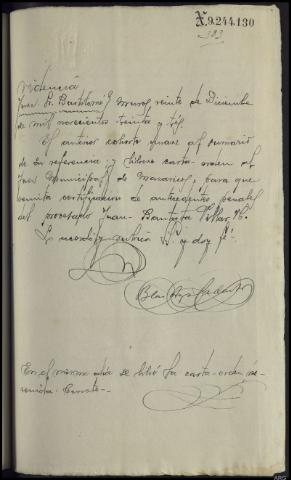 X.9.244.130
Providencia
Juez Sr. Bartolomé } Muros, veinte de Diciembre
de mil novecientos treinta y
El anterior exhorto únase al sumario
de la referencia; y líbrese carta-orden al
Juez Municipal de Mazaricos, para que
remita certificación de antecedentes penales
del procesado Juan Bautista Villar
Lo acordó y rubrica S.S. y doy fé.
En el mismo día se libró la carta-orden pre-
venida. Conste.-
ARG